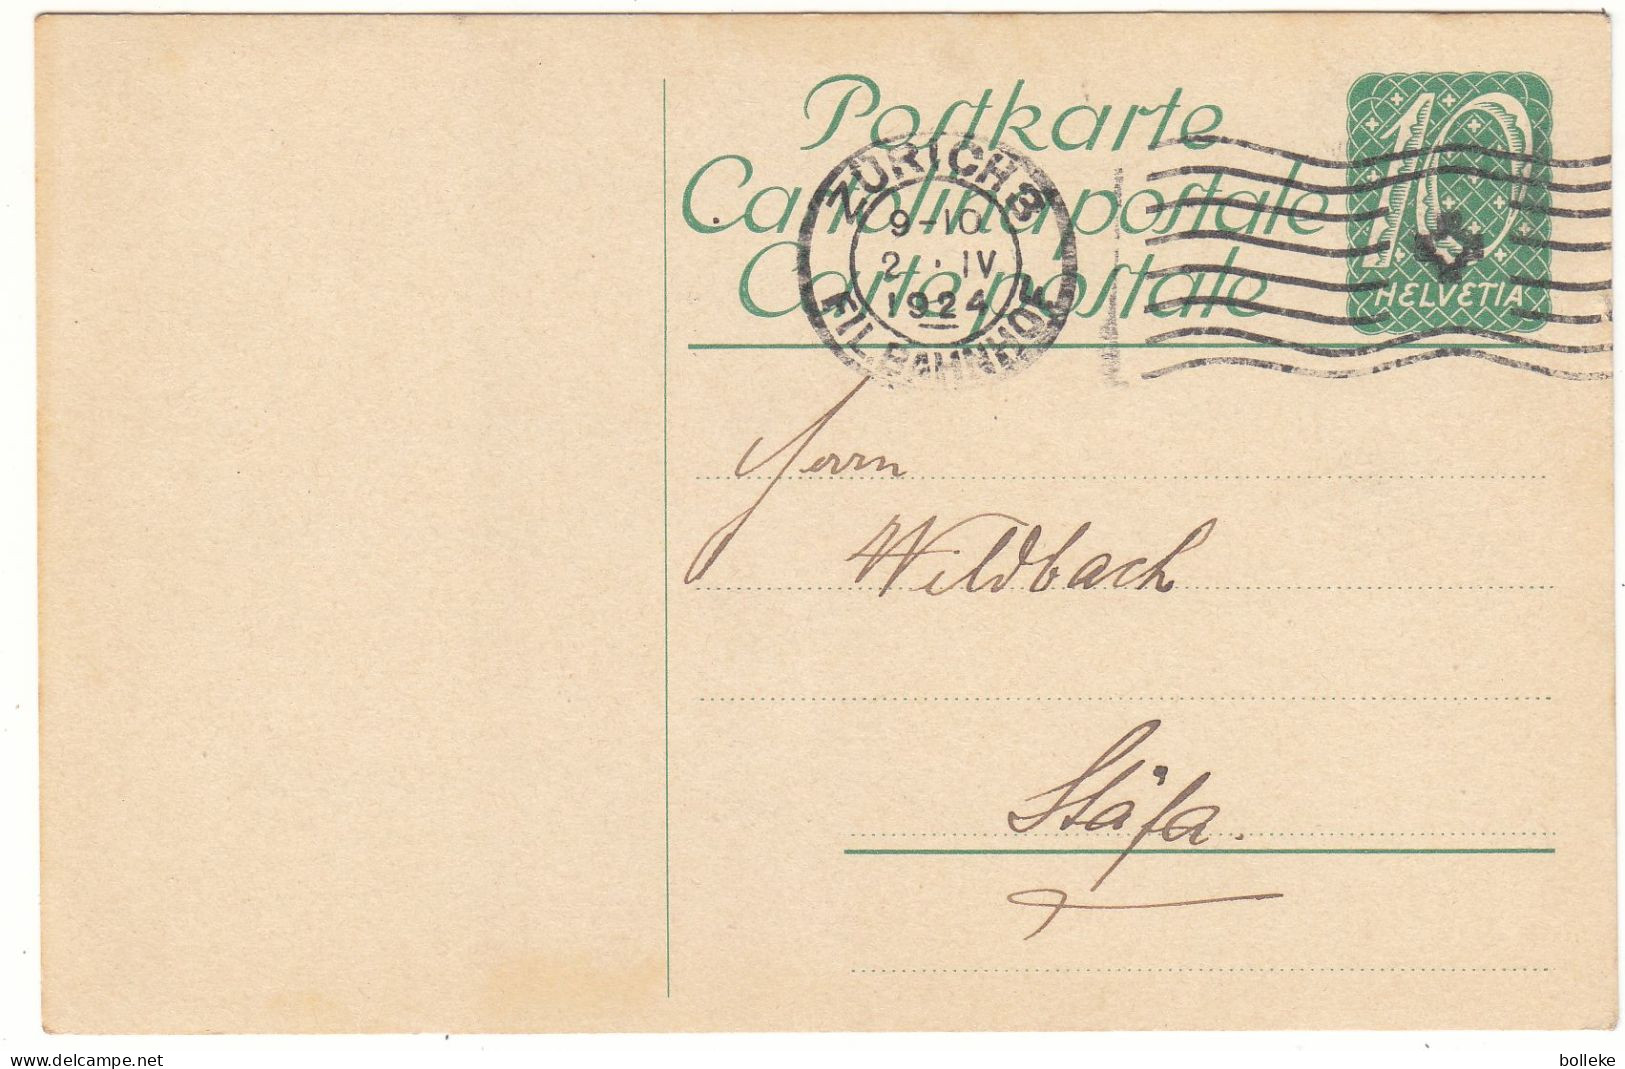 Postkarte
Cartolina postale
Carte postale
10
HELVETIA
ZÜRICH 8
9-10
2 . IV
1924
FIL. BAHNHOF
Herrn
Wildbach
Stäfa.
www.delcampe.net
bolleke